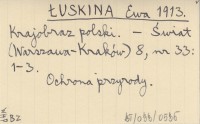 ŁUSKINA Ewa 1913.
Krajobraz polski. — Świat
(Warszawa-Kraków) 8, nr 33:
1-3.
Ochrona przyrody.